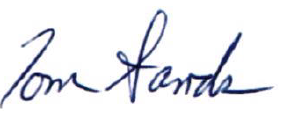 Tom Sands